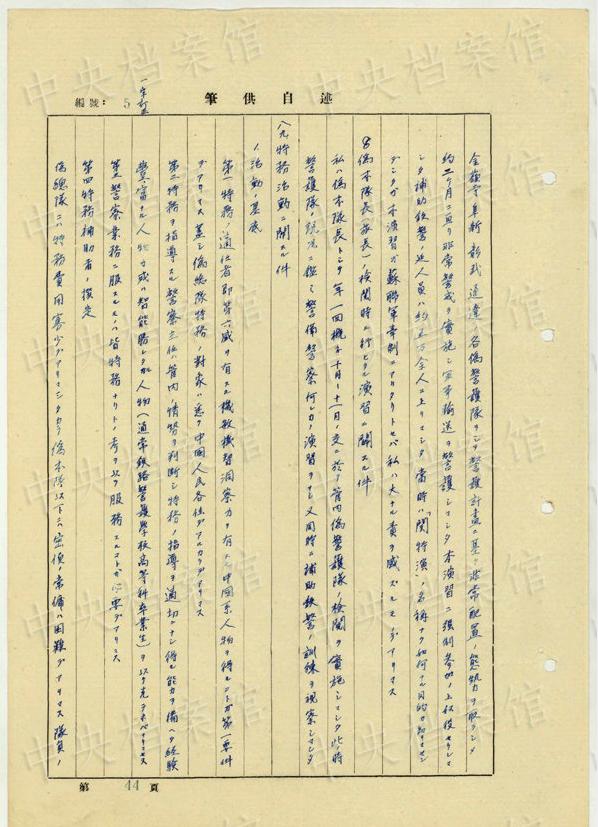 筆供自述
編號：5
金嶺寺阜新彰武通遼ノ各偽警護隊ヲシテ警護計畫ニ基キ非常配置ノ態勢ヲ取ラシメ
約二ケ月ニ亘リ非常警戒ヲ實施シ軍事輸送ヲ警護シマシタ本演習ニ強制参加ノ上
シタ補助鉄警ノ延人員ハ約五万余人ニ上リマシタ當時ハ「関特演」ノ名稱
デシタガ本演習ガ蘇聯軍牽制ニアリタリトセバ私ハ大ナル責ヲ感ズルモノデアリマス
8偽本隊長(家長)ノ検閲時ニ行ヒタル演習ニ関スル件
私ハ偽本隊長トシテ年一回概ネ十月ー十一月ノ交ニ於テ管内偽警護隊ノ検閲ヲ實施シマシタ此ノ時
警護隊ノ現況ニ鑑ミ警備警察何レカノ演習ヲナシ又同時ニ補助鉄警ノ訓練ヲ視察シマシタ
八九特務活動ニ関スル件
1活動ノ基底
第一特務ノ適任者即第六感ヲ有スル機敏機智洞察力ヲ有スル中國系人物ヲ得ルコトガ第一要件
デアリマス蓋シ偽總隊特務ノ對象ハ悉ク中國人民各位デアルカラデアリマス
第二特務ヲ指導スル警察主任ハ管内ノ情勢ヲ判断シ特務ノ指導ヲ適切ニナシ得ル能力ヲ備ヘタ經驗
豐富ナル人物カ或ハ智能勝レタル人物(通常鉄路警護學校高等科卒業生)ヲ以テ充テネバナリマセン
第三警察業務ニ服スルモノハ皆特務ナリトノ考ヲ以テ服務スルコトガ必要デアリマス
第四特務補助者ノ撰定
偽總隊ニハ特務費用寡少デアリマシタカラ偽本隊以下ニハ密偵ノ常傭ハ困難デアリマス隊員ノ
第44頁